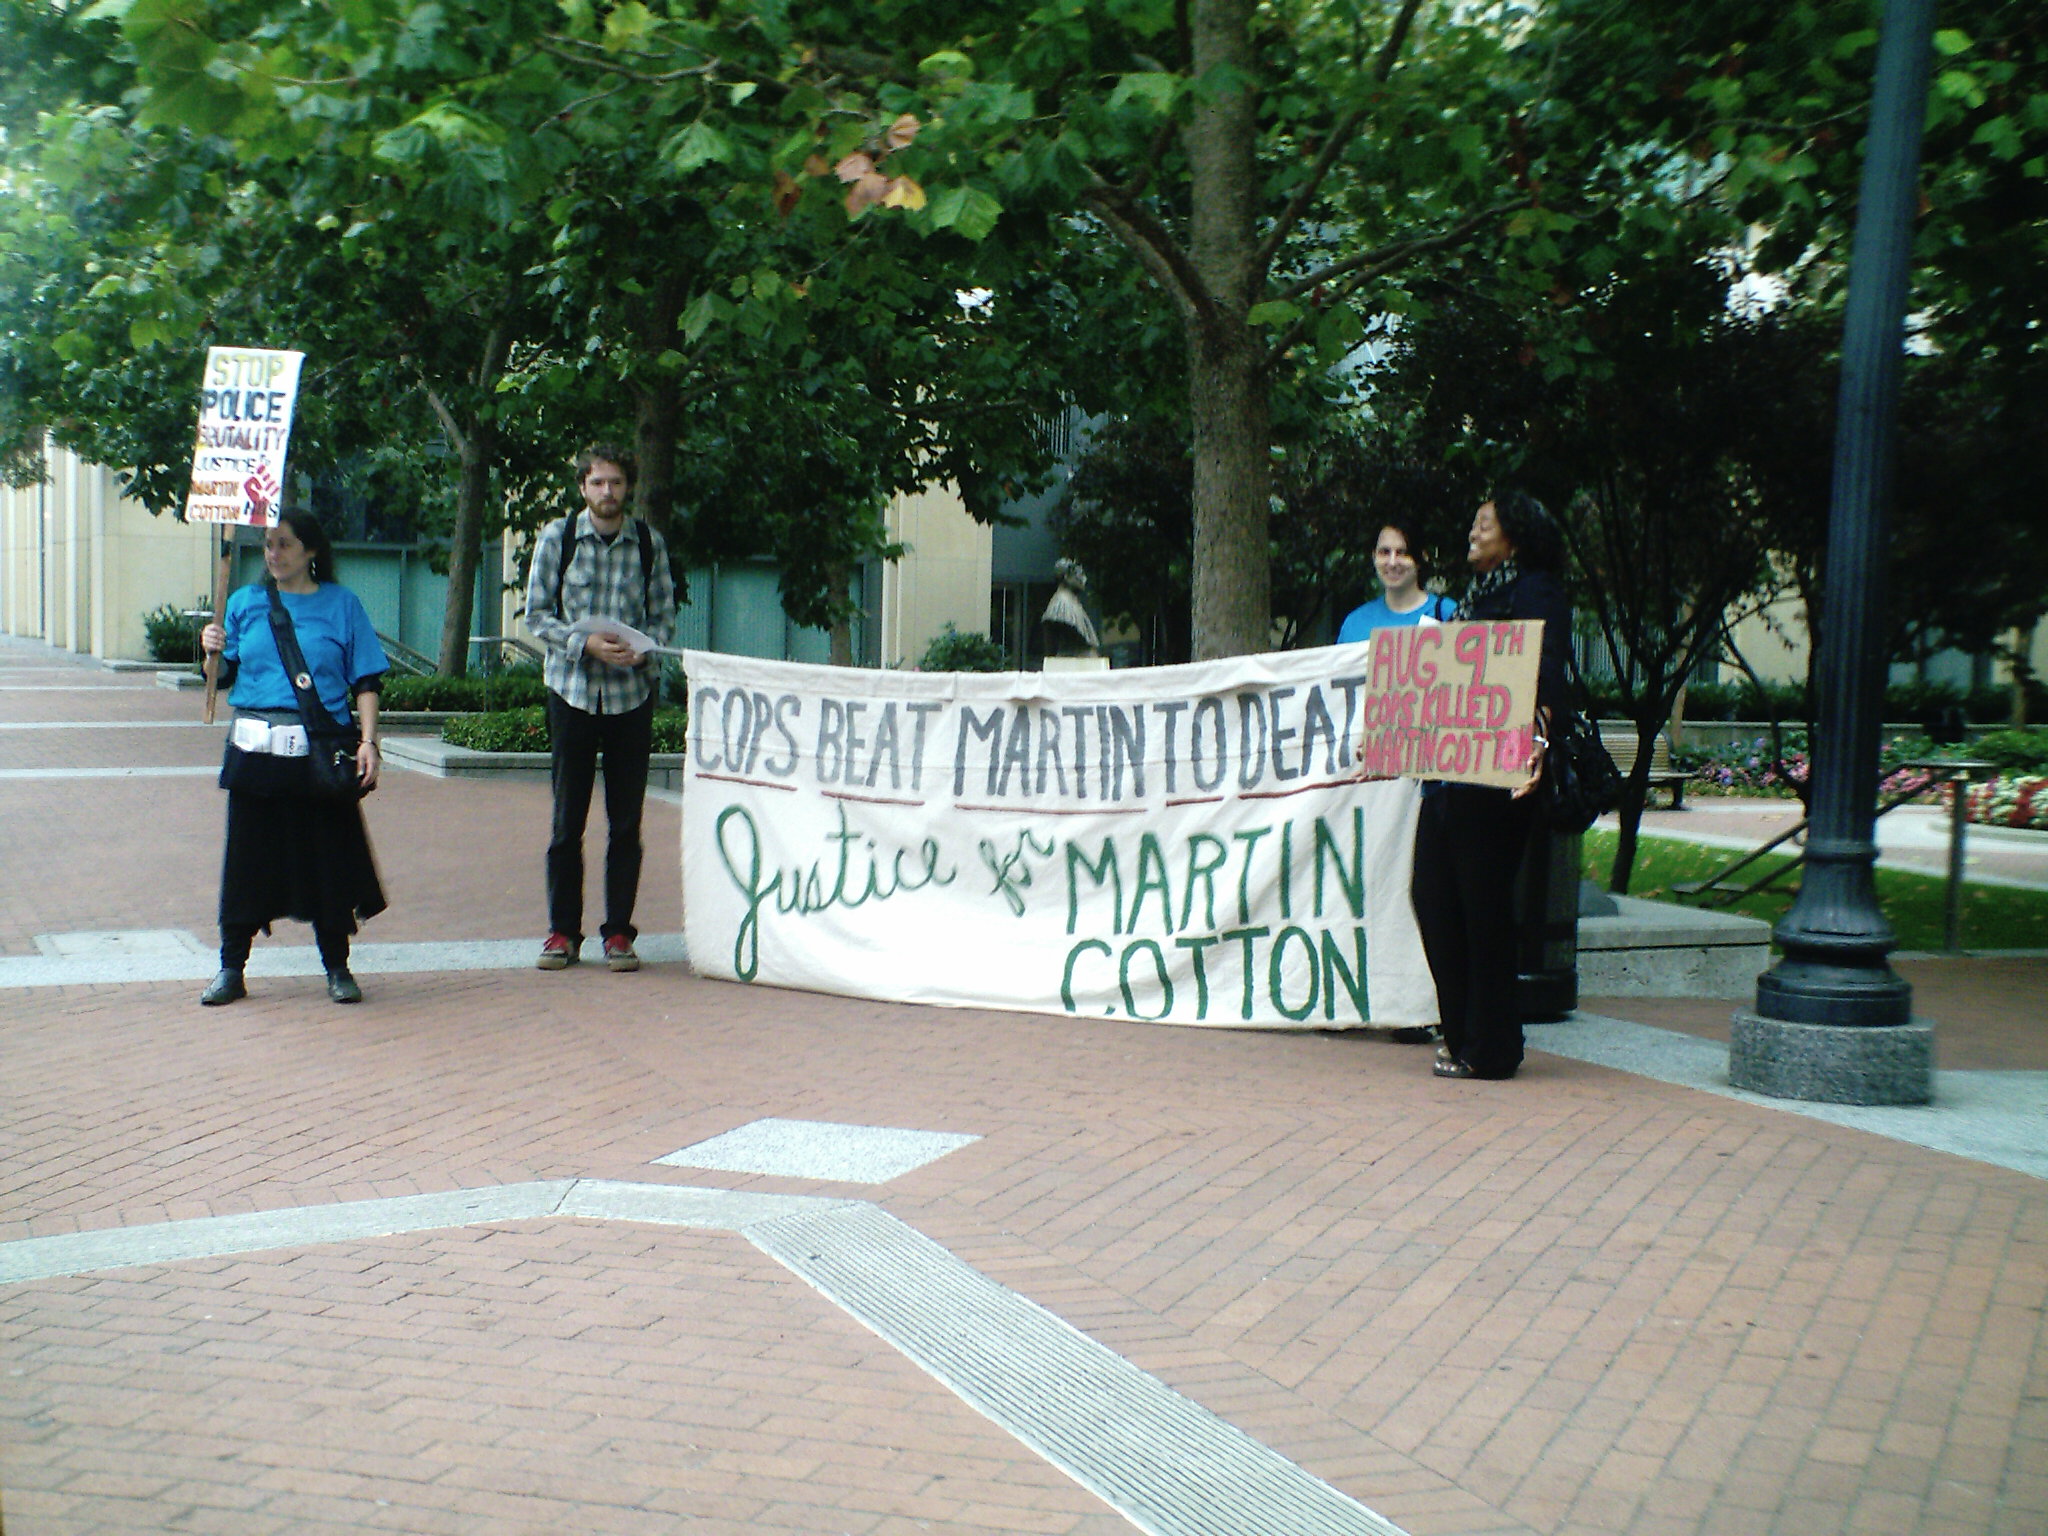 STOP
POLICE
BRUTALITY
JUSTICE
MARTIN
COTTON
COPS BEAT MARTIN TO DEAT
Justice for MARTIN
COTTON
AUG 9TH
COPS KILLED
MARTIN COTTON
COPS